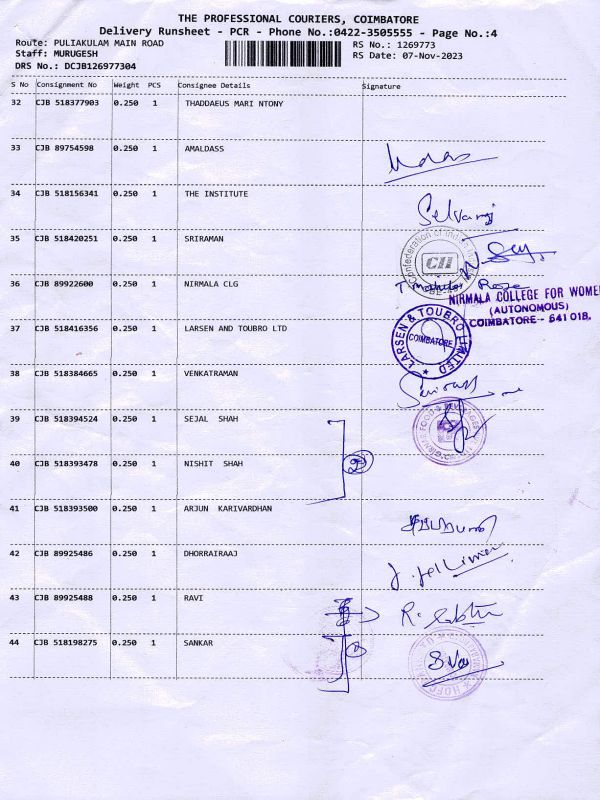 THE PROFESSIONAL COURIERS, COIMBATORE
Delivery Runsheet - PCR - Phone No.:0422-3505555 - Page No.:4
Route: PULIAKULAM MAIN ROAD RS No.: 1269773
Staff: MURUGESH RS Date: 07-Nov-2023
DRS No.: DCJB126977304
S No Consignment No Weight PCS Consignee Details Signature
32 CJB 518377903 0.250 1 THADDAEUS MARI NTONY
33 CJB 89754598 0.250 1 AMALDASS
34 CJB 518156341 0.250 1 THE INSTITUTE
Selvaraj
35 CJB 518420251 0.250 1 SRIRAMAN
Confederation of Indian
CII
36 CJB 89922600 0.250 1 NIRMALA CLG
NIRMALA COLLEGE FOR WOMEN
(AUTONOMOUS)
COIMBATORE - 641 018.
37 CJB 518416356 0.250 1 LARSEN AND TOUBRO LTD
LARSEN & TOUBRO LIMITED
COIMBATORE
38 CJB 518384665 0.250 1 VENKATRAMAN
39 CJB 518394524 0.250 1 SEJAL SHAH
40 CJB 518393478 0.250 1 NISHIT SHAH
2
41 CJB 518393500 0.250 1 ARJUN KARIVARDHAN
42 CJB 89925486 0.250 1 DHORRAIRAAJ
43 CJB 89925488 0.250 1 RAVI
44 CJB 518198275 0.250 1 SANKAR